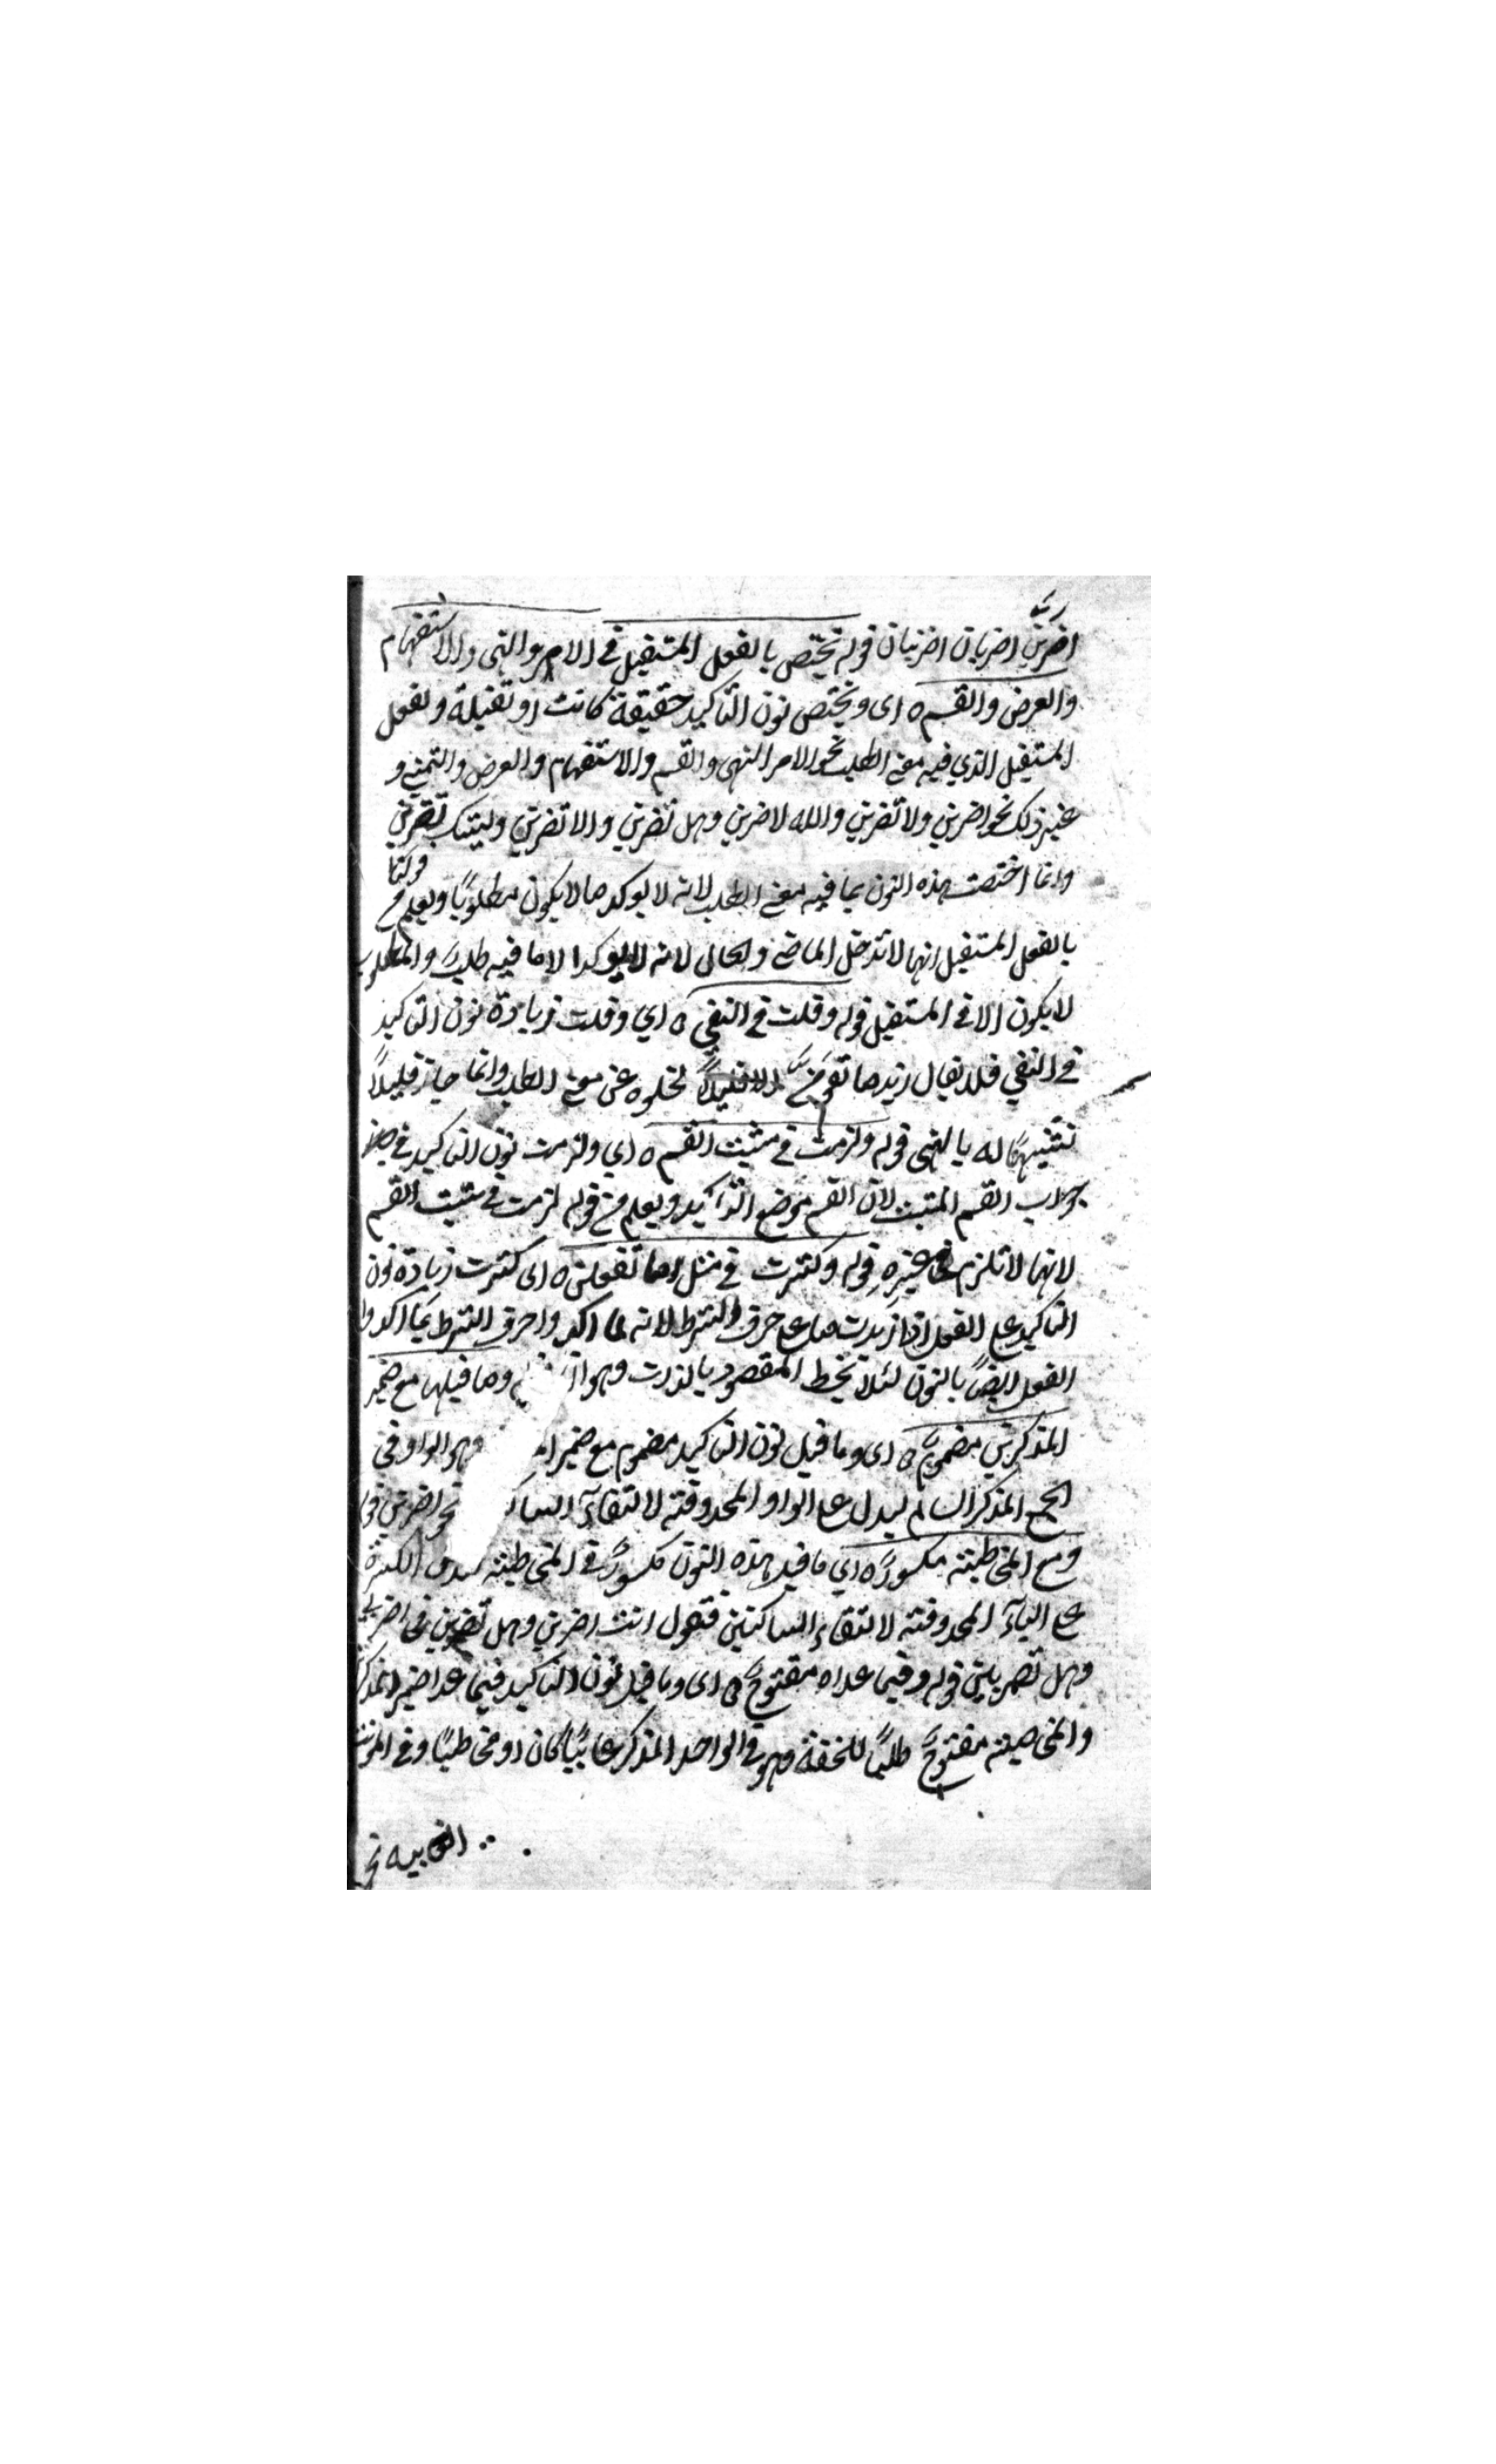 اضربن اضربان اضربنان قوله تختص بالفعل المستقبل في الامر والنهي والاستفهام
والعرض والقسم ه اى ويختص نون التاكيد حقيقة كانت او ثقيلة ولفعل
المستقبل الذي فيه معنى الطلب نحو الامر النهى والقسم والاستفهام والعرض والتمنى و
غير ذلك نحو اضربن ولا تضربن والله لاضربن وهل تضربن والا تضربن وليتك تضربن
وانما اختصت هذه النون بما فيه معنى الطلب لانه لا يوكد ما لا يكون مطلوبًا ويعلم من قولنا
بالفعل المستقبل انها لا تدخل الماضى والحال لانه لا يوكد الا ما فيه طلب والمطلوب
لا يكون الا في المستقبل قوله وقلت في النفي ه اي وقلت زيادة نون التاكيد
في النفي فلا يقال زيد ما تقومن الا قليلاً لخلوه عن معنى الطلب وانما جاز قليلاً
تشبيهًا له بالنهى قوله ولزمت في مثبت القسم ه اي ولزمت نون التاكيد في
جواب القسم المثبت لان القسم موضع التاكيد ويعلم من قوله لزمت في مثبت القسم
لانها لا تلزم في غيره قوله وكثرت في مثل اما تفعلن ه اى كثرت زيادة نون
التاكيد على الفعل اذا زيدت ما على حرف الشرط لانه لما اكدوا حرف الشرط بما اكدوا
الفعل ايضًا بالنون لئلا تخط المقصود بالذات وهو وما قبلها مع ضمير
المذكرين مضموم ه اى وما قبل نون التاكيد مضموم مع ضمير وهو الواو فى
الجمع المذكر السالم ليدل على الواو المحذوفة لالتقاء نحو اضربن قوله
ومع المخاطبة مكسورة ه اي ما قبل هذه النون مكسورة في المخاطبة الكسرة
على الياء المحذوفة لالتقاء الساكنين فتقول انت اضربن وهل تضربن في اضربي
وهل تضربين قوله وفيما عداه مفتوح ه اى وما قبل نون التاكيد فيما عدا ضمير المذكرين
والمخاطبة مفتوح طلبًا للخفة وهو في الواحد المذكر غائبًا كان او مخاطبًا وفى المؤنث
الغايبه نحو